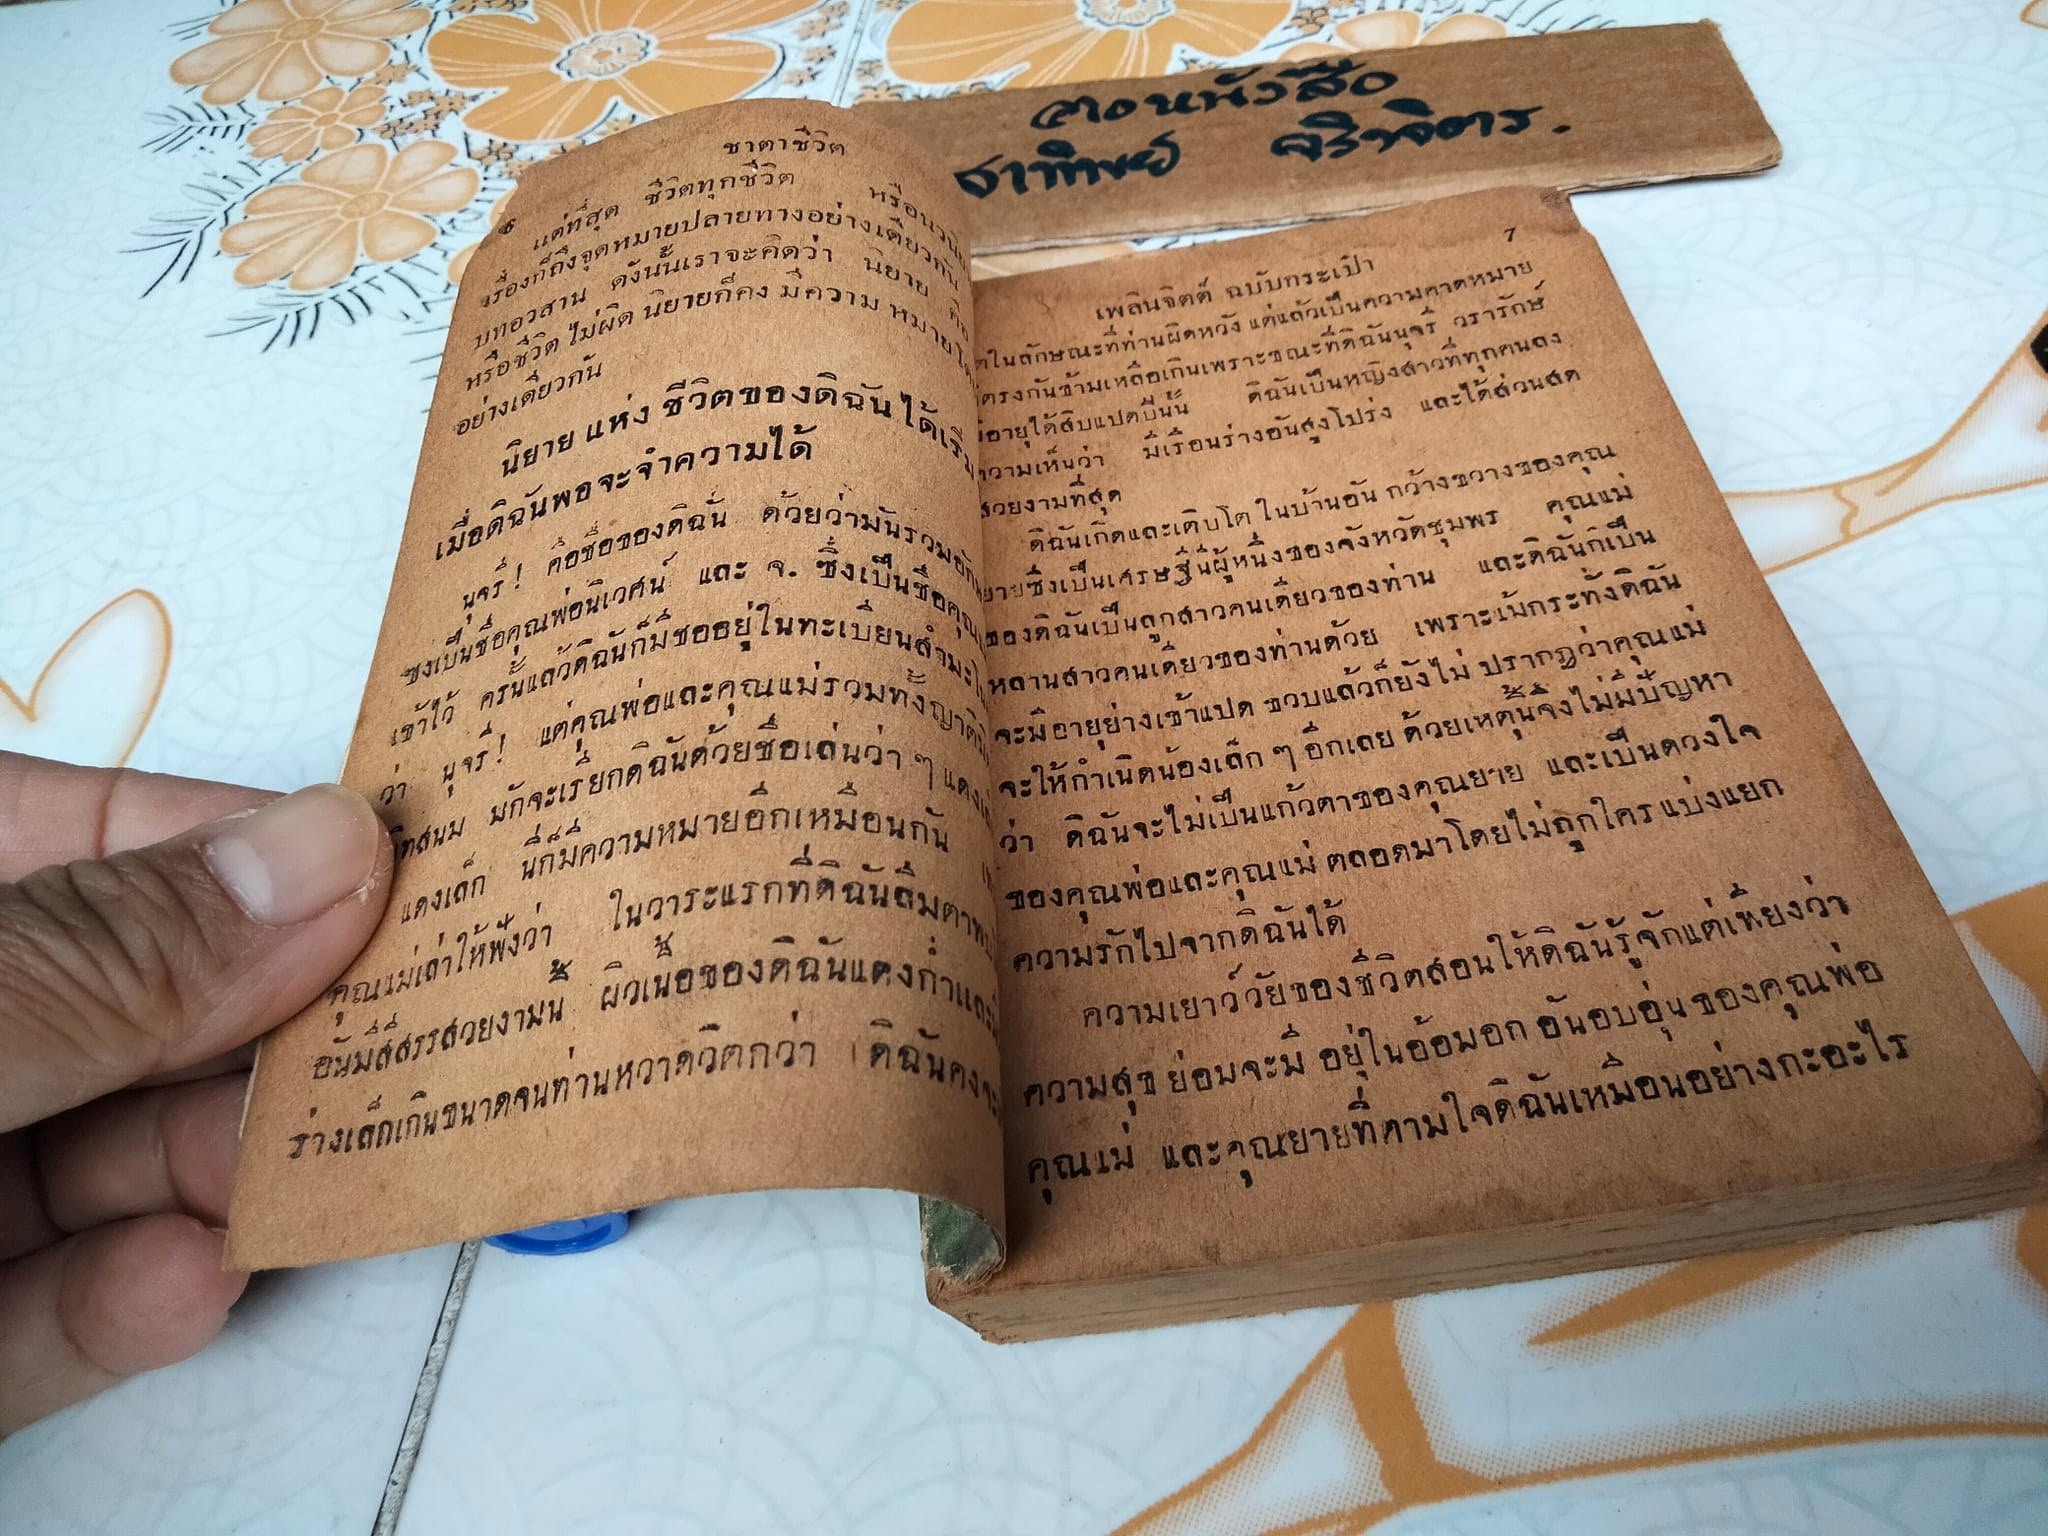 ชาตาชีวิต
๖ แต่ที่สุด ชีวิตทุกชีวิต หรือนวนิยาย
เรื่องก็ถึงจุดหมายปลายทางอย่างเดียวกัน
บทอวสาน ดังนั้นเราจะคิดว่า นิยาย คือ
หรือชีวิต ไม่ผิด นิยายก็คง มีความ หมาย
อย่างเดียวกัน
นิยาย แห่ง ชีวิตของดิฉัน ได้เริ่ม
เมื่อดิฉันพอจะจำความได้
นุจรี! คือชื่อของดิฉัน ด้วยว่ามันรวม
ซึ่งเป็นชื่อคุณพ่อนิเวศน์ และ จ. ซึ่งเป็นชื่อคุณ
เข้าไว้ ครั้นแล้วดิฉันก็มีชื่ออยู่ในทะเบียนสำมะโน
ว่า นุจรี! แต่คุณพ่อและคุณแม่รวมทั้งญาติ
สนิม มักจะเรียกดิฉันด้วยชื่อเล่นว่า ๆ แดง
แดงเล็ก นี่ก็มีความหมายอีกเหมือนกัน
คุณแม่เล่าให้ฟังว่า ในวาระแรกที่ดิฉันลืมตา
อันมีสีสรรสวยงามนี้ ผิวเนื้อของดิฉันแดงก่ำและ
ร่างเล็กเกินขนาดจนท่านหวาดวิตกว่า ดิฉันคงจะ
ตอนหนังสือ
ธาทิพย์ จริงจิตร.
7
เพลินจิตต์ ฉบับกระเป๋า
ในลักษณะที่ท่านผิดหวัง แต่แล้วเป็นความคาดหมาย
ตรงกันข้ามเหลือเกินเพราะขณะที่ดิฉันนุจรี วรารักษ์
มีอายุได้สิบแปดปีนั้น ดิฉันเป็นหญิงสาวที่ทุกคนลง
ความเห็นว่า มีเรือนร่างอันสูงโปร่ง และได้ส่วนสด
สวยงามที่สุด
ดิฉันเกิดและเติบโต ในบ้านอัน กว้างขวางของคุณ
ยายซึ่งเป็นเศรษฐีนีผู้หนึ่งของจังหวัดชุมพร คุณแม่
ของดิฉันเป็นลูกสาวคนเดียวของท่าน และดิฉันก็เป็น
หลานสาวคนเดียวของท่านด้วย เพราะแม้กระทั่งดิฉัน
จะมีอายุย่างเข้าแปด ขวบแล้วก็ยังไม่ ปรากฎว่าคุณแม่
จะให้กำเนิดน้องเล็ก ๆ อีกเลย ด้วยเหตุนี้จึงไม่มีปัญหา
ว่า ดิฉันจะไม่เป็นแก้วตาของคุณยาย และเป็นดวงใจ
ของคุณพ่อและคุณแม่ ตลอดมาโดยไม่ถูกใคร แบ่งแยก
ความรักไปจากดิฉันได้
ความเยาว์วัยของชีวิตสอนให้ดิฉันรู้จักแต่เพียงว่า
ความสุข ย่อมจะมี อยู่ในอ้อมอก อันอบอุ่น ของคุณพ่อ
คุณแม่ และคุณยายที่ตามใจดิฉันเหมือนอย่างกะอะไร